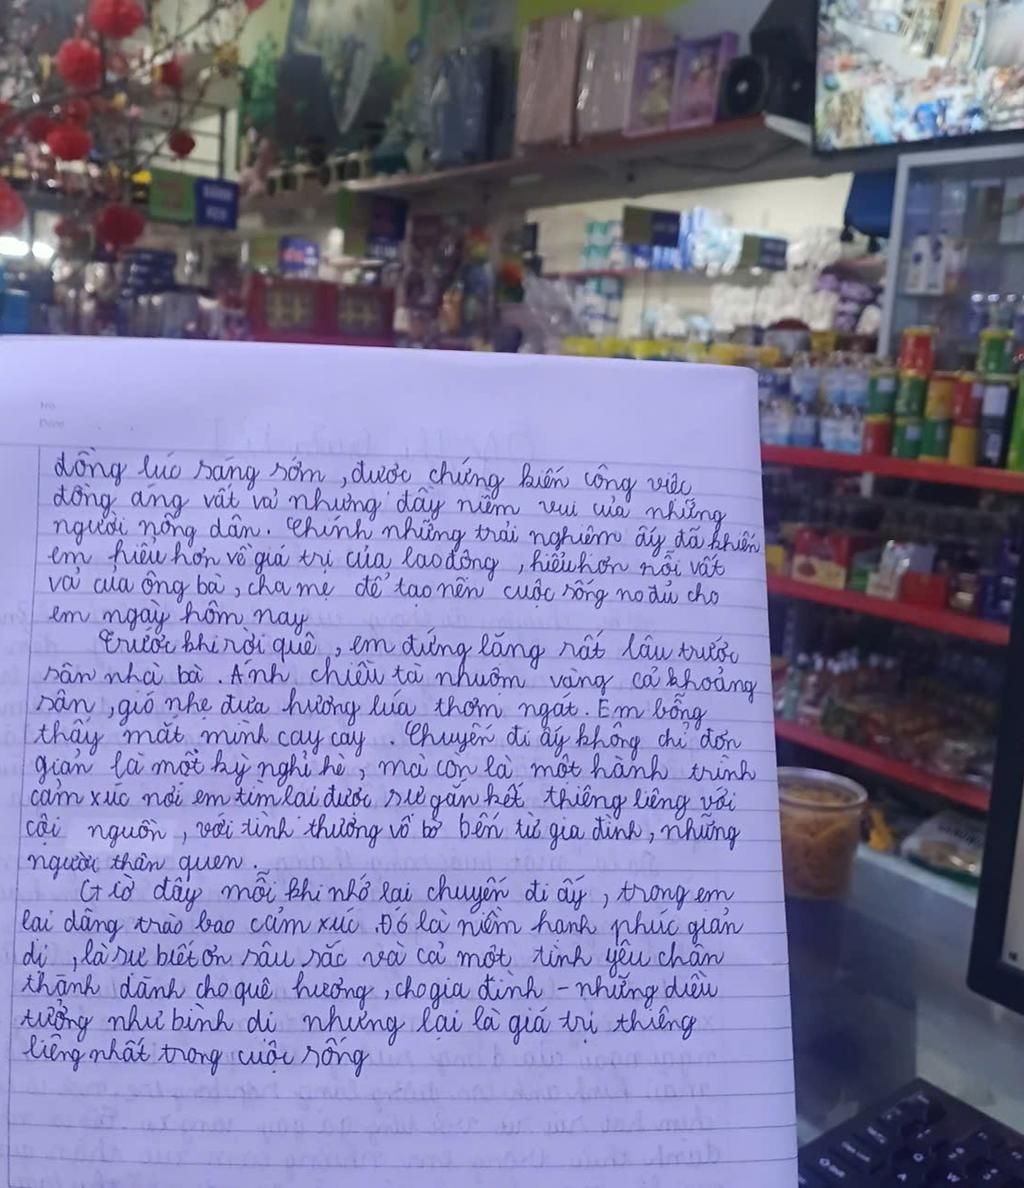 No.
Date
đồng lúc sáng sớm, được chứng kiến công việc
đồng áng vất vả nhưng đầy niềm vui của những
người nông dân. Chính những trải nghiệm ấy đã khiến
em hiểu hơn về giá trị của lao động, hiểu hơn nỗi vất
vả của ông bà, cha mẹ để tạo nên cuộc sống no đủ cho
em ngày hôm nay
Trước khi rời quê, em đứng lặng rất lâu trước
sân nhà bà. Ánh chiều tà nhuộm vàng cả khoảng
sân, gió nhẹ đưa hương lúa thơm ngát. Em bỗng
thấy mắt mình cay cay. Chuyến đi ấy không chỉ đơn
giản là một kỳ nghỉ hè, mà còn là một hành trình
cảm xúc nơi em tìm lại được sự gắn kết thiêng liêng với
cội nguồn, với tình thương vô bờ bến từ gia đình, những
người thân quen.
Giờ đây mỗi khi nhớ lại chuyến đi ấy, trong em
lại dâng trào bao cảm xúc. Đó là niềm hạnh phúc giản
dị, là sự biết ơn sâu sắc và cả một tình yêu chân
thành dành cho quê hương, cho gia đình - những điều
tưởng như bình dị nhưng lại là giá trị thiêng
liêng nhất trong cuộc sống